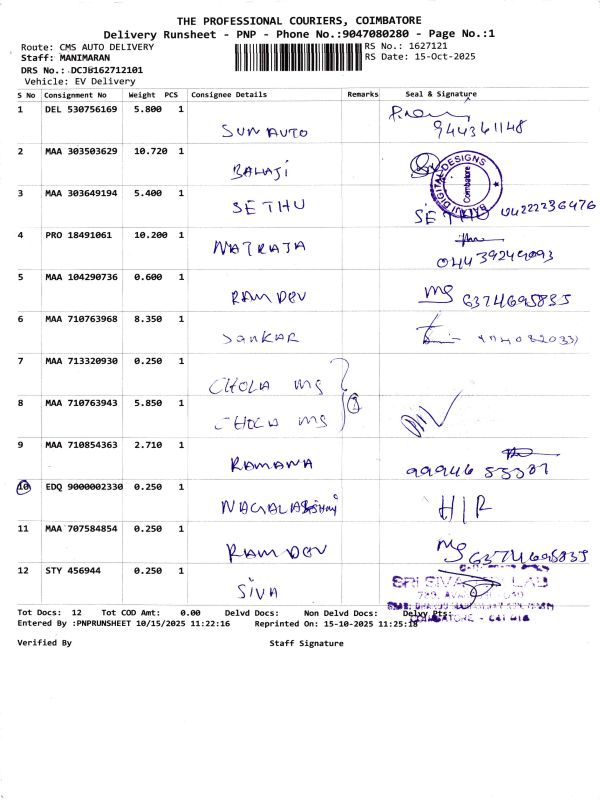 THE PROFESSIONAL COURIERS, COIMBATORE
Delivery Runsheet - PNP - Phone No.:9047080280 - Page No.:1
Route: CMS AUTO DELIVERY RS No.: 1627121
Staff: MANIMARAN RS Date: 15-Oct-2025
DRS No.: DCJB162712101
Vehicle: EV Delivery
S No Consignment No Weight PCS Consignee Details Remarks Seal & Signature
1 DEL 530756169 5.800 1
SUN AUTO 9443611148
2 MAA 303503629 10.720 1
BALAJI BALAJI DIGITAL DESIGNS Coimbatore
3 MAA 303649194 5.400 1
SETHU SETHU 04222236476
4 PRO 18491061 10.200 1
NATRAJA
5 MAA 104290736 0.600 1
RAM DEV 6374695835
6 MAA 710763968 8.350 1
SANKAR
7 MAA 713320930 0.250 1
CHOLA MS
8 MAA 710763943 5.850 1
CHOLA MS
9 MAA 710854363 2.710 1
RAMANA
10 EDQ 9000002330 0.250 1
H/R
11 MAA 707584854 0.250 1
RAM DEV 6374695835
12 STY 456944 0.250 1
SIVA SRI SIVA LAB
Tot Docs: 12 Tot COD Amt: 0.00 Delvd Docs: Non Delvd Docs: Delvy Pts:
Entered By :PNPRUNSHEET 10/15/2025 11:22:16 Reprinted On: 15-10-2025 11:25:18
Verified By Staff Signature